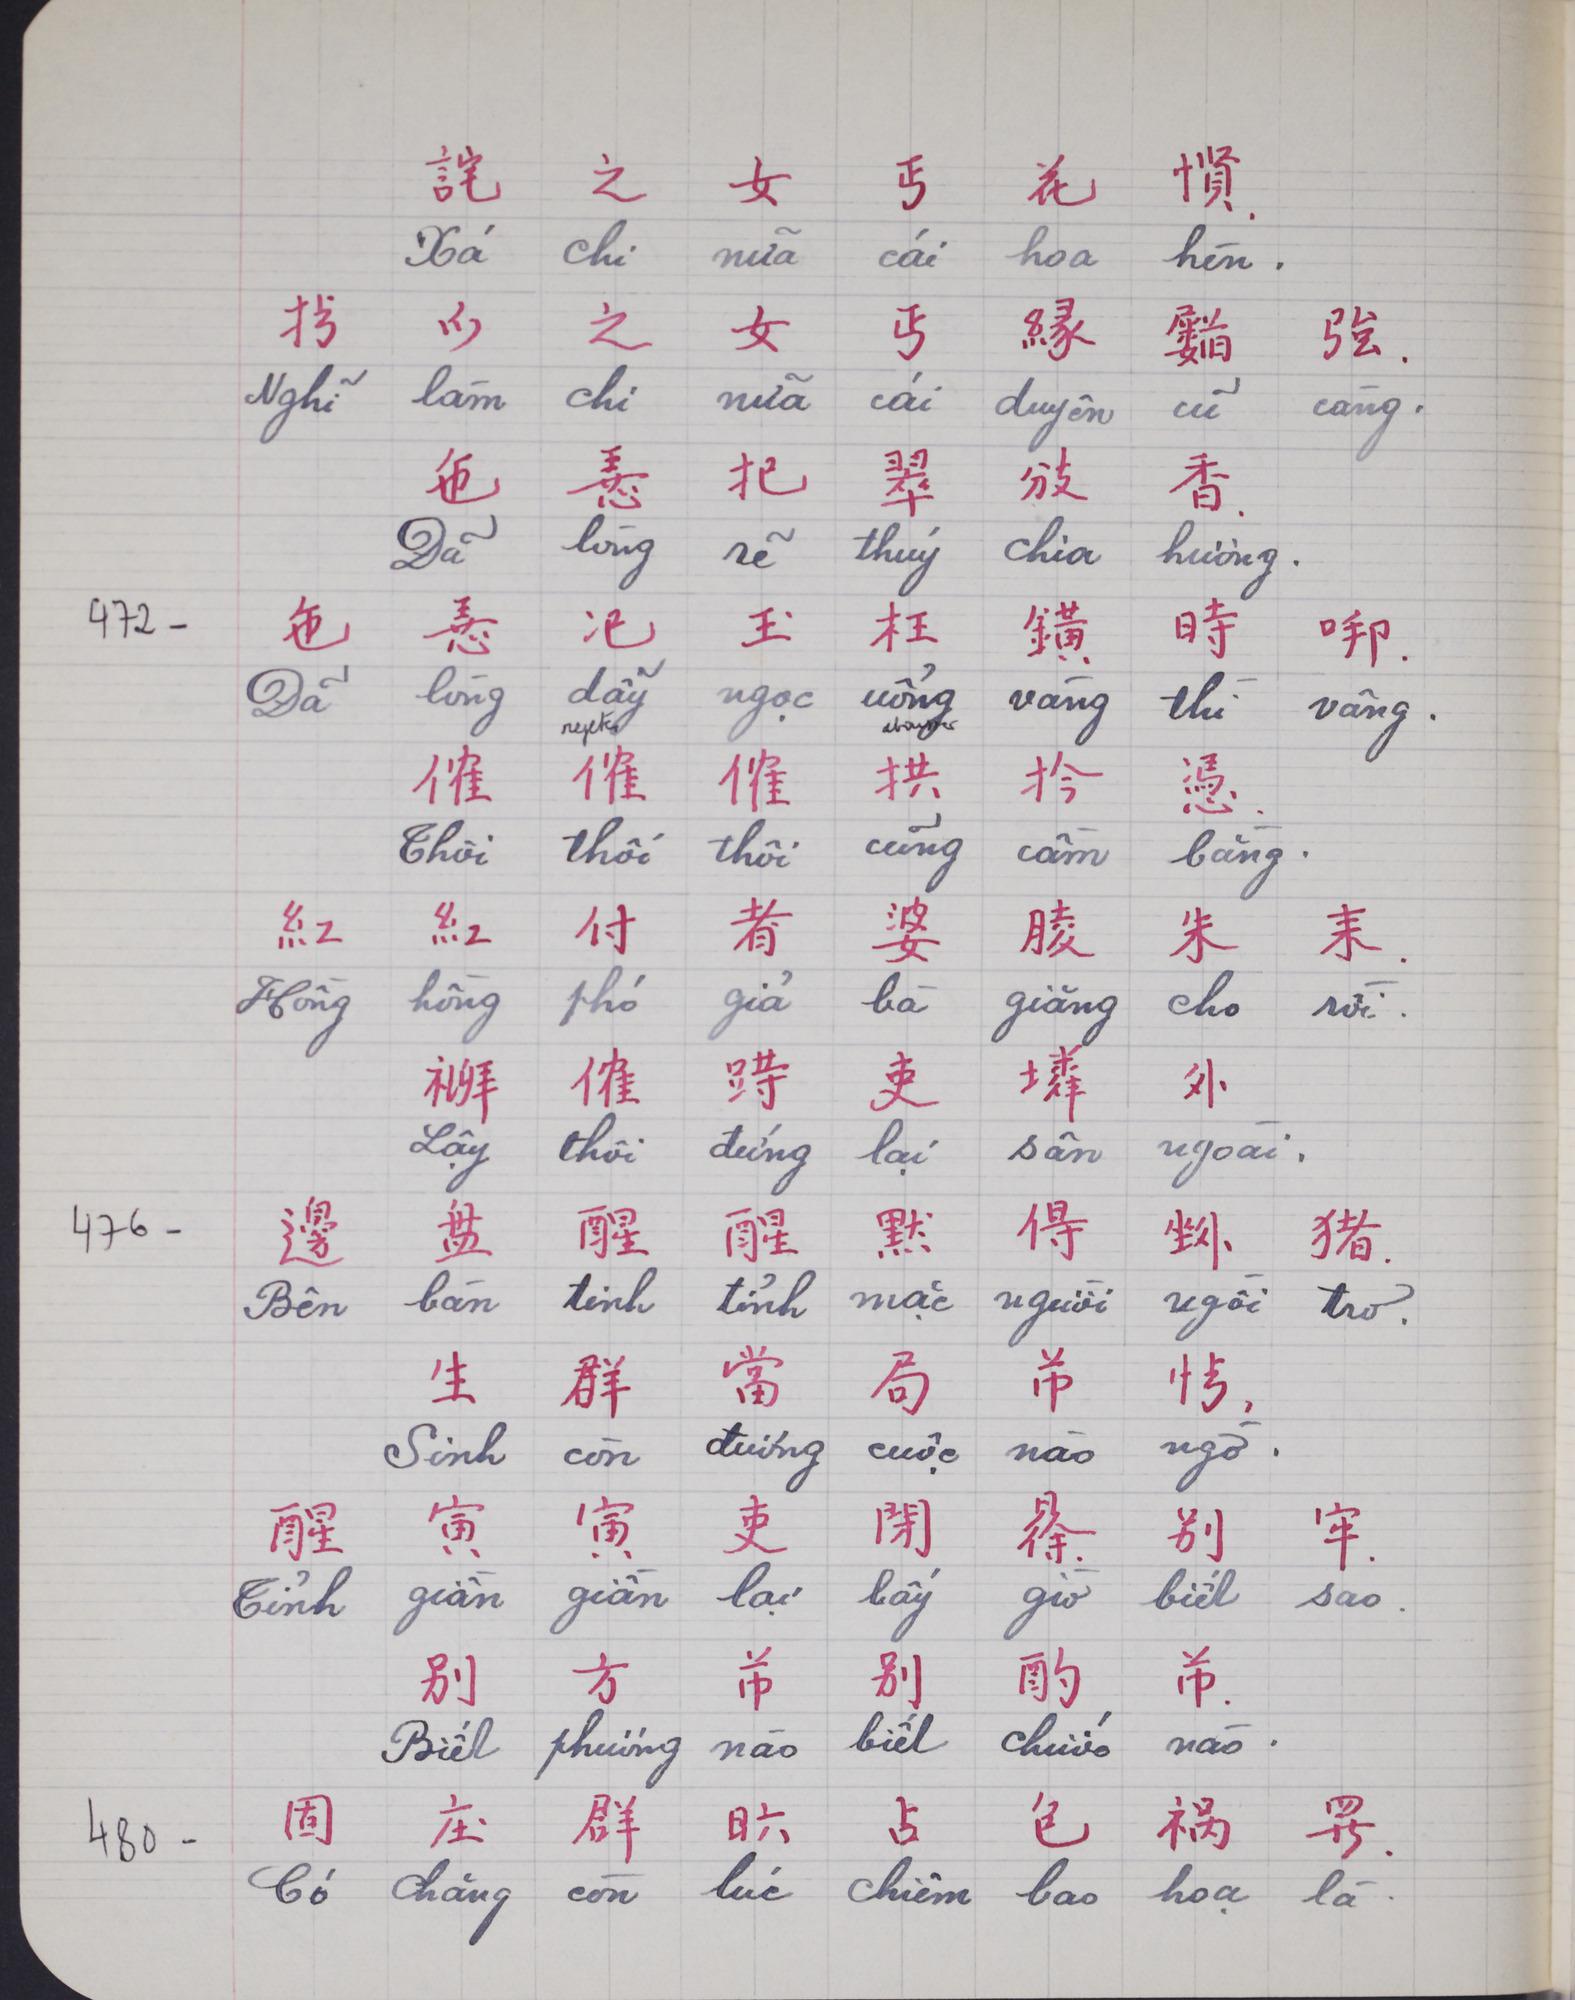 詫 之 女 丐 花 慣.
Xá chi nữa cái hoa hèn.
扲 𬈋 之 女 丐 緣 𡳵 強.
Nghĩ làm chi nữa cái duyên cũ càng.
㐌 𢚸 扡 翠 𢺹 香.
Dã lòng rẽ thuý chia hương.
472 - 㐌 𢚸 玉 枉 鐄 時 㖫.
Dã lòng dẫy ngọc uổng vàng thì vâng.
傕 傕 傕 拱 扲 憑.
Thôi thôi thôi cũng cầm bằng.
紅 紅 付 者 婆 朱 耒.
Hồng hồng phó giả bà giăng cho rồi.
傕 吏 外
Lậy thôi đứng lại sân ngoài.
476 - 邊 盘 醒 醒 默 得 猪.
Bên bàn tinh tỉnh mặc người ngồi trơ.
生 群 當 局 芇 情,
Sinh còn đương cuộc nào ngờ.
醒 寅 寅 吏 閉 別 牢.
Tỉnh giần giần lại bấy giờ biết sao.
別 方 芇 別 酌 芇.
Biết phương nào biết chước nào.
480 - 固 庄 群 占 包 禍 羅.
Có chăng còn lúc chiêm bao hoạ là.